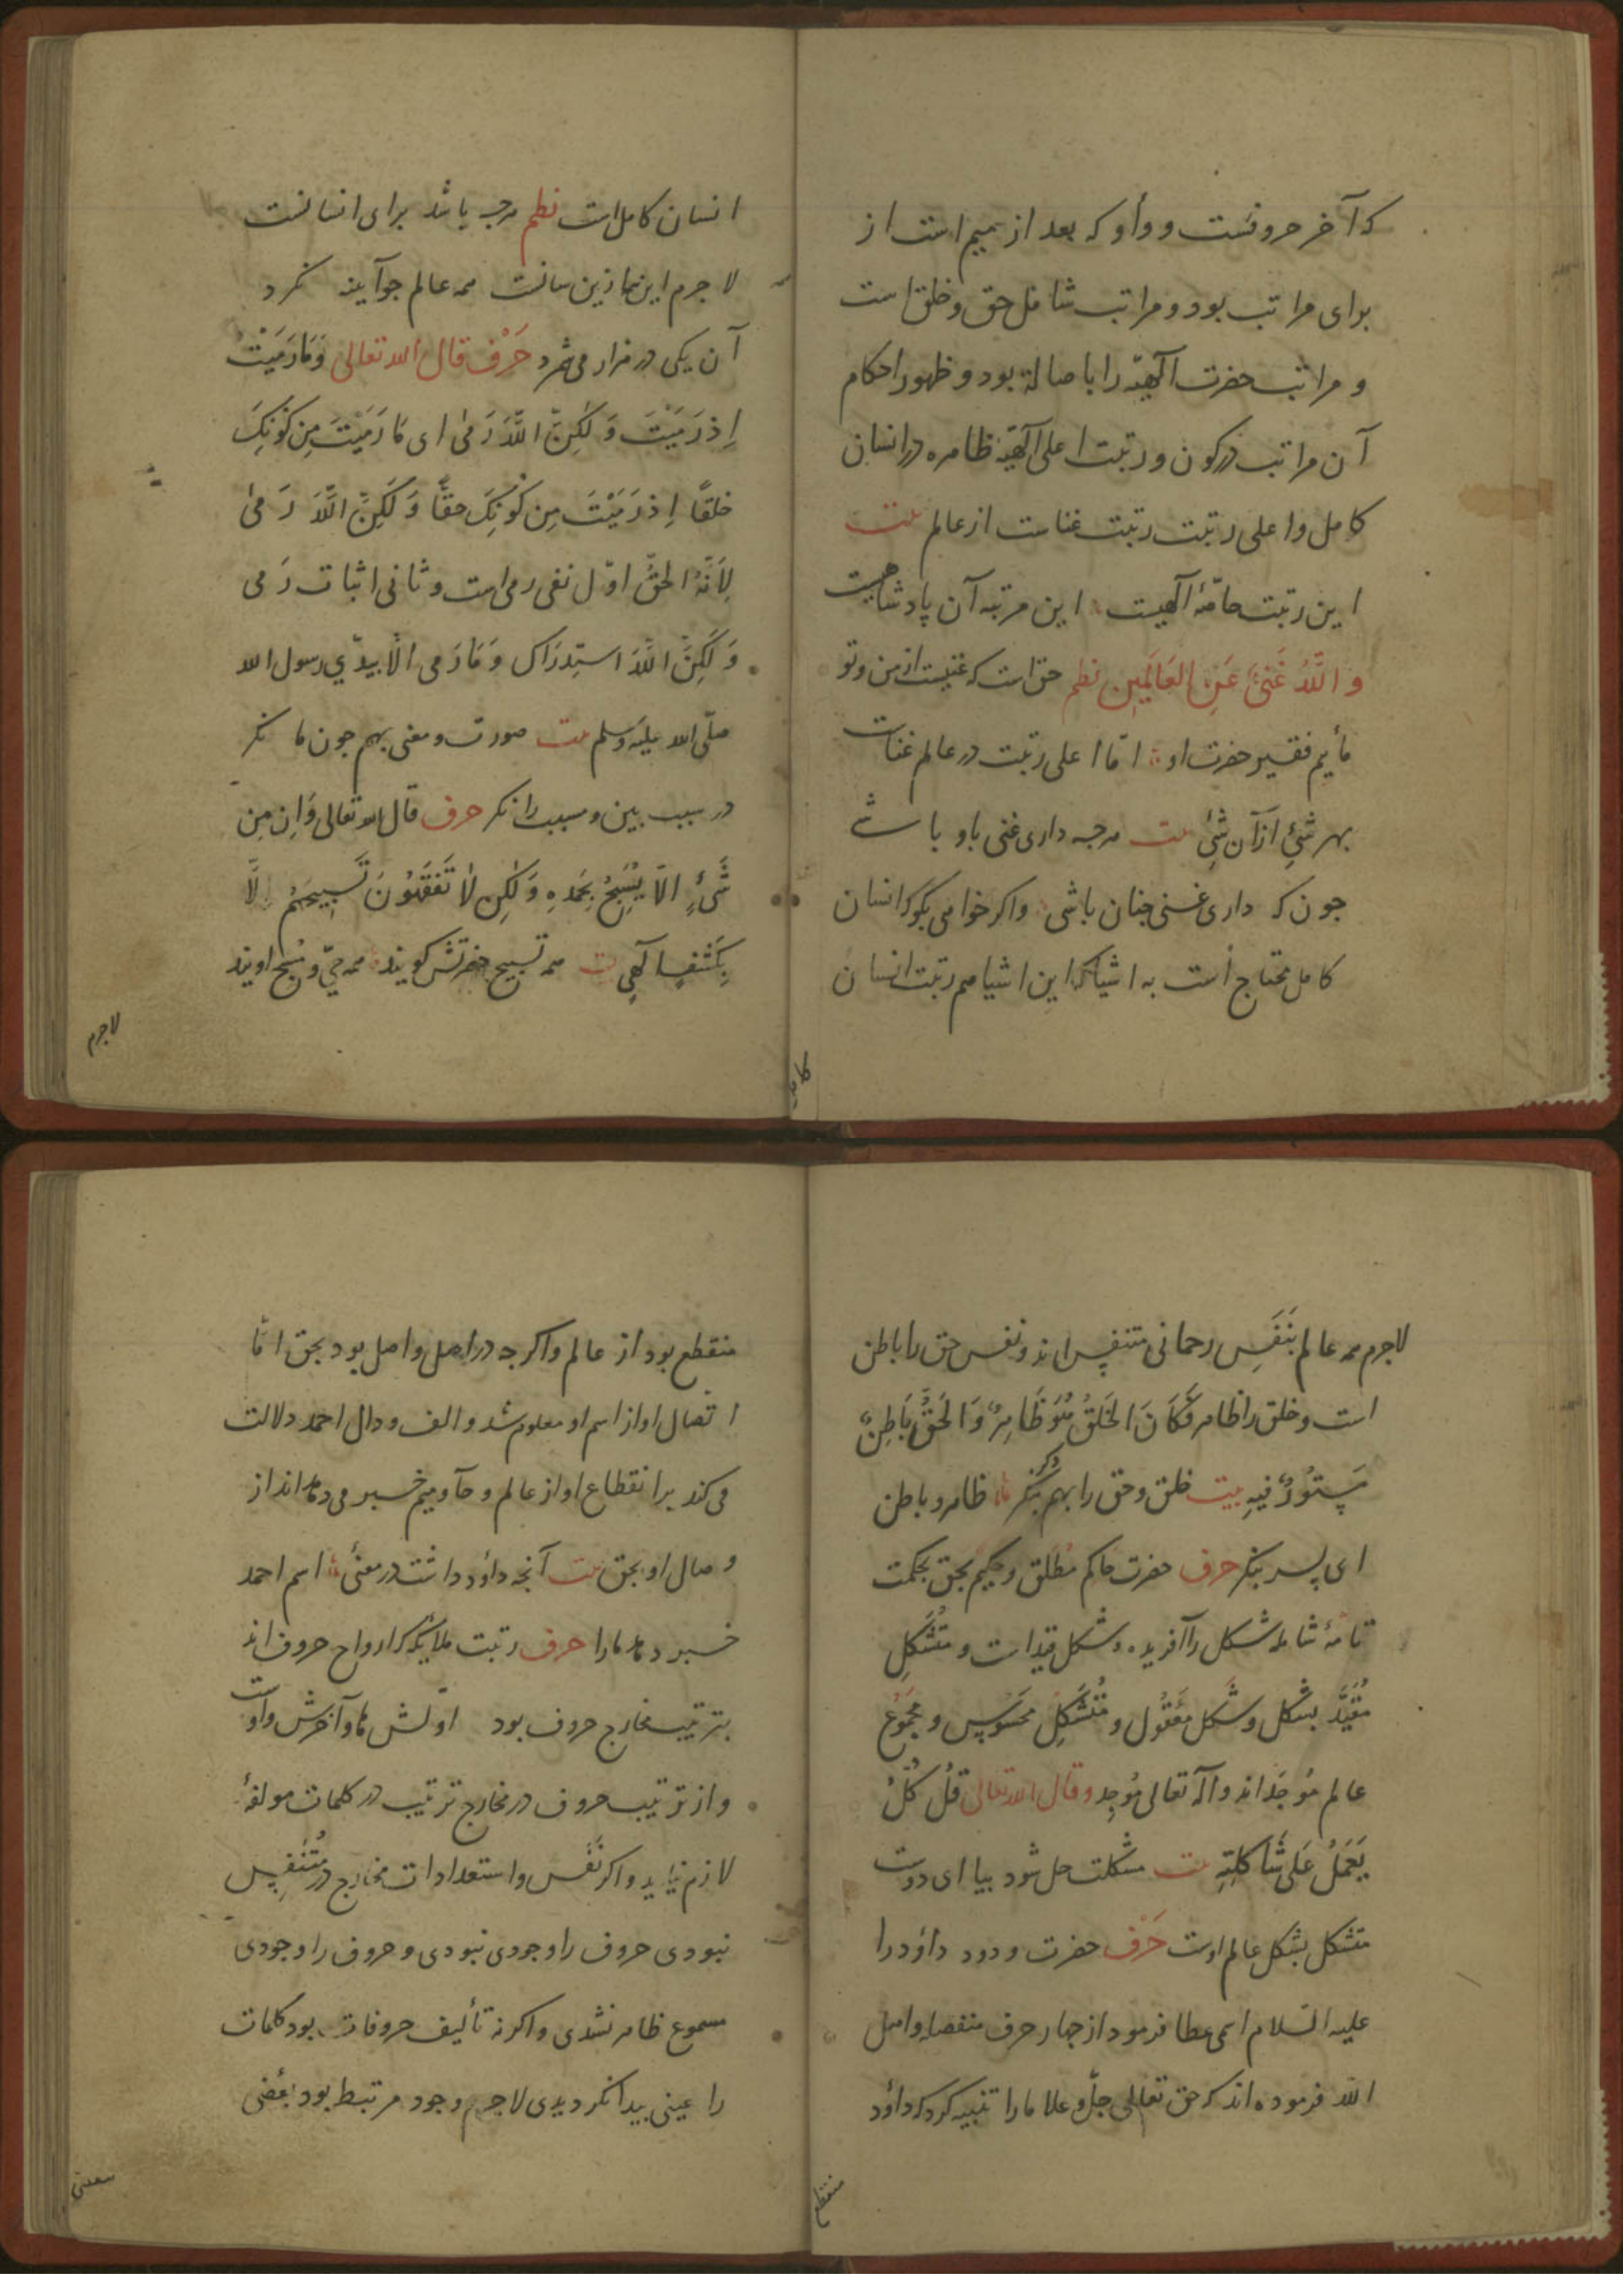 که آخر حروفست و وأو که بعد از میم است از
برای مراتب بود و مراتب شامل حق و خلق است
و مراتب حضرت آلهیّه را باصالة بود و ظهور احکام
آن مراتب در کون و رتبت اعلی آلهیّه ظاهره در انسان
کامل و اعلی رتبت رتبت غناست از عالم بیت
این رتبت خاصّهٔ آلهیت این مرتبه آن پادشاهیت
و اللّٰهُ غَنیٌّ عَنِ العَالَمِین نظم حق است که غنیست از من و تو
مأیم فقیر حضرت او امّا اعلی رتبت در عالم غنات
بهر شئٍ از آن شئِ بیت هرجه داری غنی باو باشے
جون که داری غنی جنان باشی واکر خواهی بکو که انسان
کامل محتاج است به اشیا که این اشیا هم رتبت انسان
کامل
انسان کامل است نظم هرجه باشد برای انسانست
لاجرم این نماز بین سانت همه عالم جو آینه نکرد
آن یکی در هزار می شمرد حَرْف قال الله تعالی وَمَا رَمَیْتَ
اِذ رَمَیْتَ وَلٰکِنَّ اللّٰهَ رَمیٰ ای مَا رَمَیْتَ مِن کَوْنِکَ
خلقًا اِذ رَمَیْتَ مِن کَوْنِکَ حقًّا وَلَکِنَّ اللّٰهَ رَمیٰ
لِاَنَّهُ الحقّ اوّل نفی رمی است و ثانی اثبات رَمی
وَلَکِنَّ اللّٰهَ استِدرَاک وَمَا رَمی اِلّا بیدّي رسول الله
صلّی الله علیه وسلم بیت صورت و معنی بهم جون ما نکر
در سبب بین و مسبب را نکر حرف قال الله تعالی وَاِن مِن
شَیْءٍ اِلّا یُسَبِّحُ بِحَمدِهِ وَلٰکِن لا تَفقَهُونَ تَسبِیحَهُم اِلَّا
بِکَشْفٍ آلهیٍ بیت همه تسبیح حضرتش کویند همه حیّ و مُسبّح اویند
لاجرم
لاجرم همه عالم بنَفَسِ رحمانی متنفِس اند و نفس حق را باطن
است و خلق را ظاهر فَکَانَ الخَلقُ هُوَ ظَاهِرٌ وَ الحَقُّ بَاطِنٌ
مَستُورٌ فیهِ بیت خلق و حق را بهم نکر ظاهر و باطن
ای پسر بنکر حرف حضرت حاکم مطلق و حکیم بحق بحکمت
تامهٔ شامله شکل را آفریده و شکل قید است و متُشَکِّل
مُقیَّد بشکل و شکل معقُول و مُتَشَکِّل محسُوس و مجمُوع
عالم مُوجَد اند و الله تعالی مُوجِد و قال الله تعالی قُل کُلٌ
یَعمَلُ عَلی شَاکِلتِهِ بیت مشکلت حل شود بیا ای دوست
متشکل بشکل عالم اوست حَرْف حضرت ودود داؤد را
علیه السّلام اسمی عطا فرمود از جهار حرف منفصله و اهل
اللّٰه فرموده اند که حق تعالی جلّ و علا ما را تنبیه کرد که داؤد
منقطع
منقطع بود از عالم واکر جه در اصل واصل بود بحق امّا
اتّصال او از اسم او معلوم شد و الف و دال احمد دلالت
می کند بر انقطاع او از عالم و حآ و میم خبر می دهد از
وصال او بحق بیت آنجه داؤد داشت در معنئ اسم احمد
خبر دهد ما را حرف رتبت ملایکه که ارواح حروف اند
بترتیب مخارج حروف بود اوّلش ها و آخرش واو است
و از ترتیب حروف در مخارج ترتیب در کلمات مولفهٔ
لازم نیاید و اکر نَفَس و استعدادات مخارج در مُتنَفِس
نبودی حروف را وجودی نبودی و حروف را وجودی
مسموع ظاهر نشدی و اکر نه تألیف حروفات بود کلمات
را عینی پیدا نکردیدی لاجرم وجود مرتبط بود بعضی